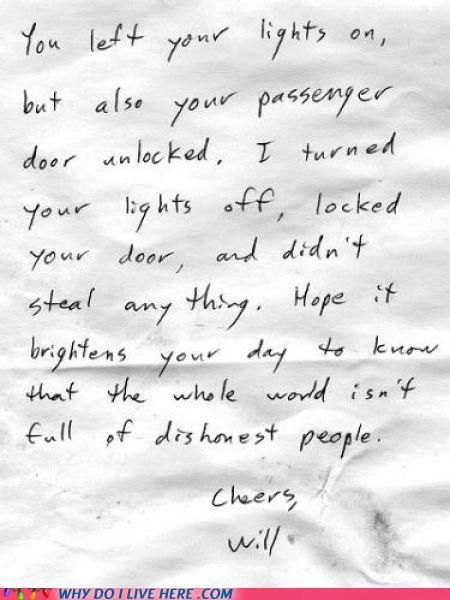 You left your lights on,
but also your passenger
door unlocked. I turned
your lights off, locked
your door, and didn't
steal anything. Hope it
brightens your day to know
that the whole world isn't
full of dishonest people.
Cheers,
Will
WHY DO I LIVE HERE .COM